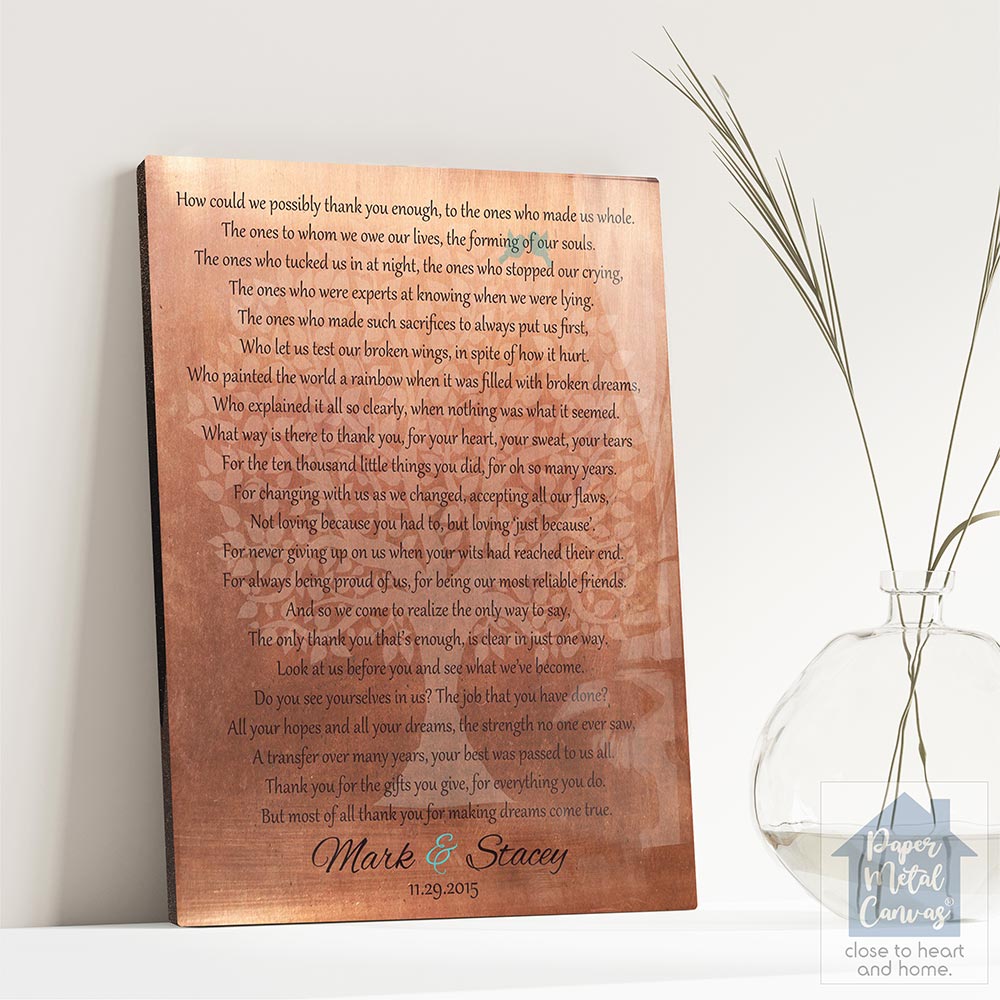 How could we possibly thank you enough, to the ones who made us whole.
The ones to whom we owe our lives, the forming of our souls.
The ones who tucked us in at night, the ones who stopped our crying,
The ones who were experts at knowing when we were lying.
The ones who made such sacrifices to always put us first,
Who let us test our broken wings, in spite of how it hurt.
Who painted the world a rainbow when it was filled with broken dreams,
Who explained it all so clearly, when nothing was what it seemed.
What way is there to thank you, for your heart, your sweat, your tears
For the ten thousand little things you did, for oh so many years.
For changing with us as we changed, accepting all our flaws,
Not loving because you had to, but loving ‘just because’.
For never giving up on us when your wits had reached their end.
For always being proud of us, for being our most reliable friends.
And so we come to realize the only way to say,
The only thank you that’s enough, is clear in just one way.
Look at us before you and see what we’ve become.
Do you see yourselves in us? The job that you have done?
All your hopes and all your dreams, the strength no one ever saw,
A transfer over many years, your best was passed to us all.
Thank you for the gifts you give, for everything you do.
But most of all thank you for making dreams come true.
Mark & Stacey
11.29.2015
Paper
Metal
Canvas®
close to heart
and home.